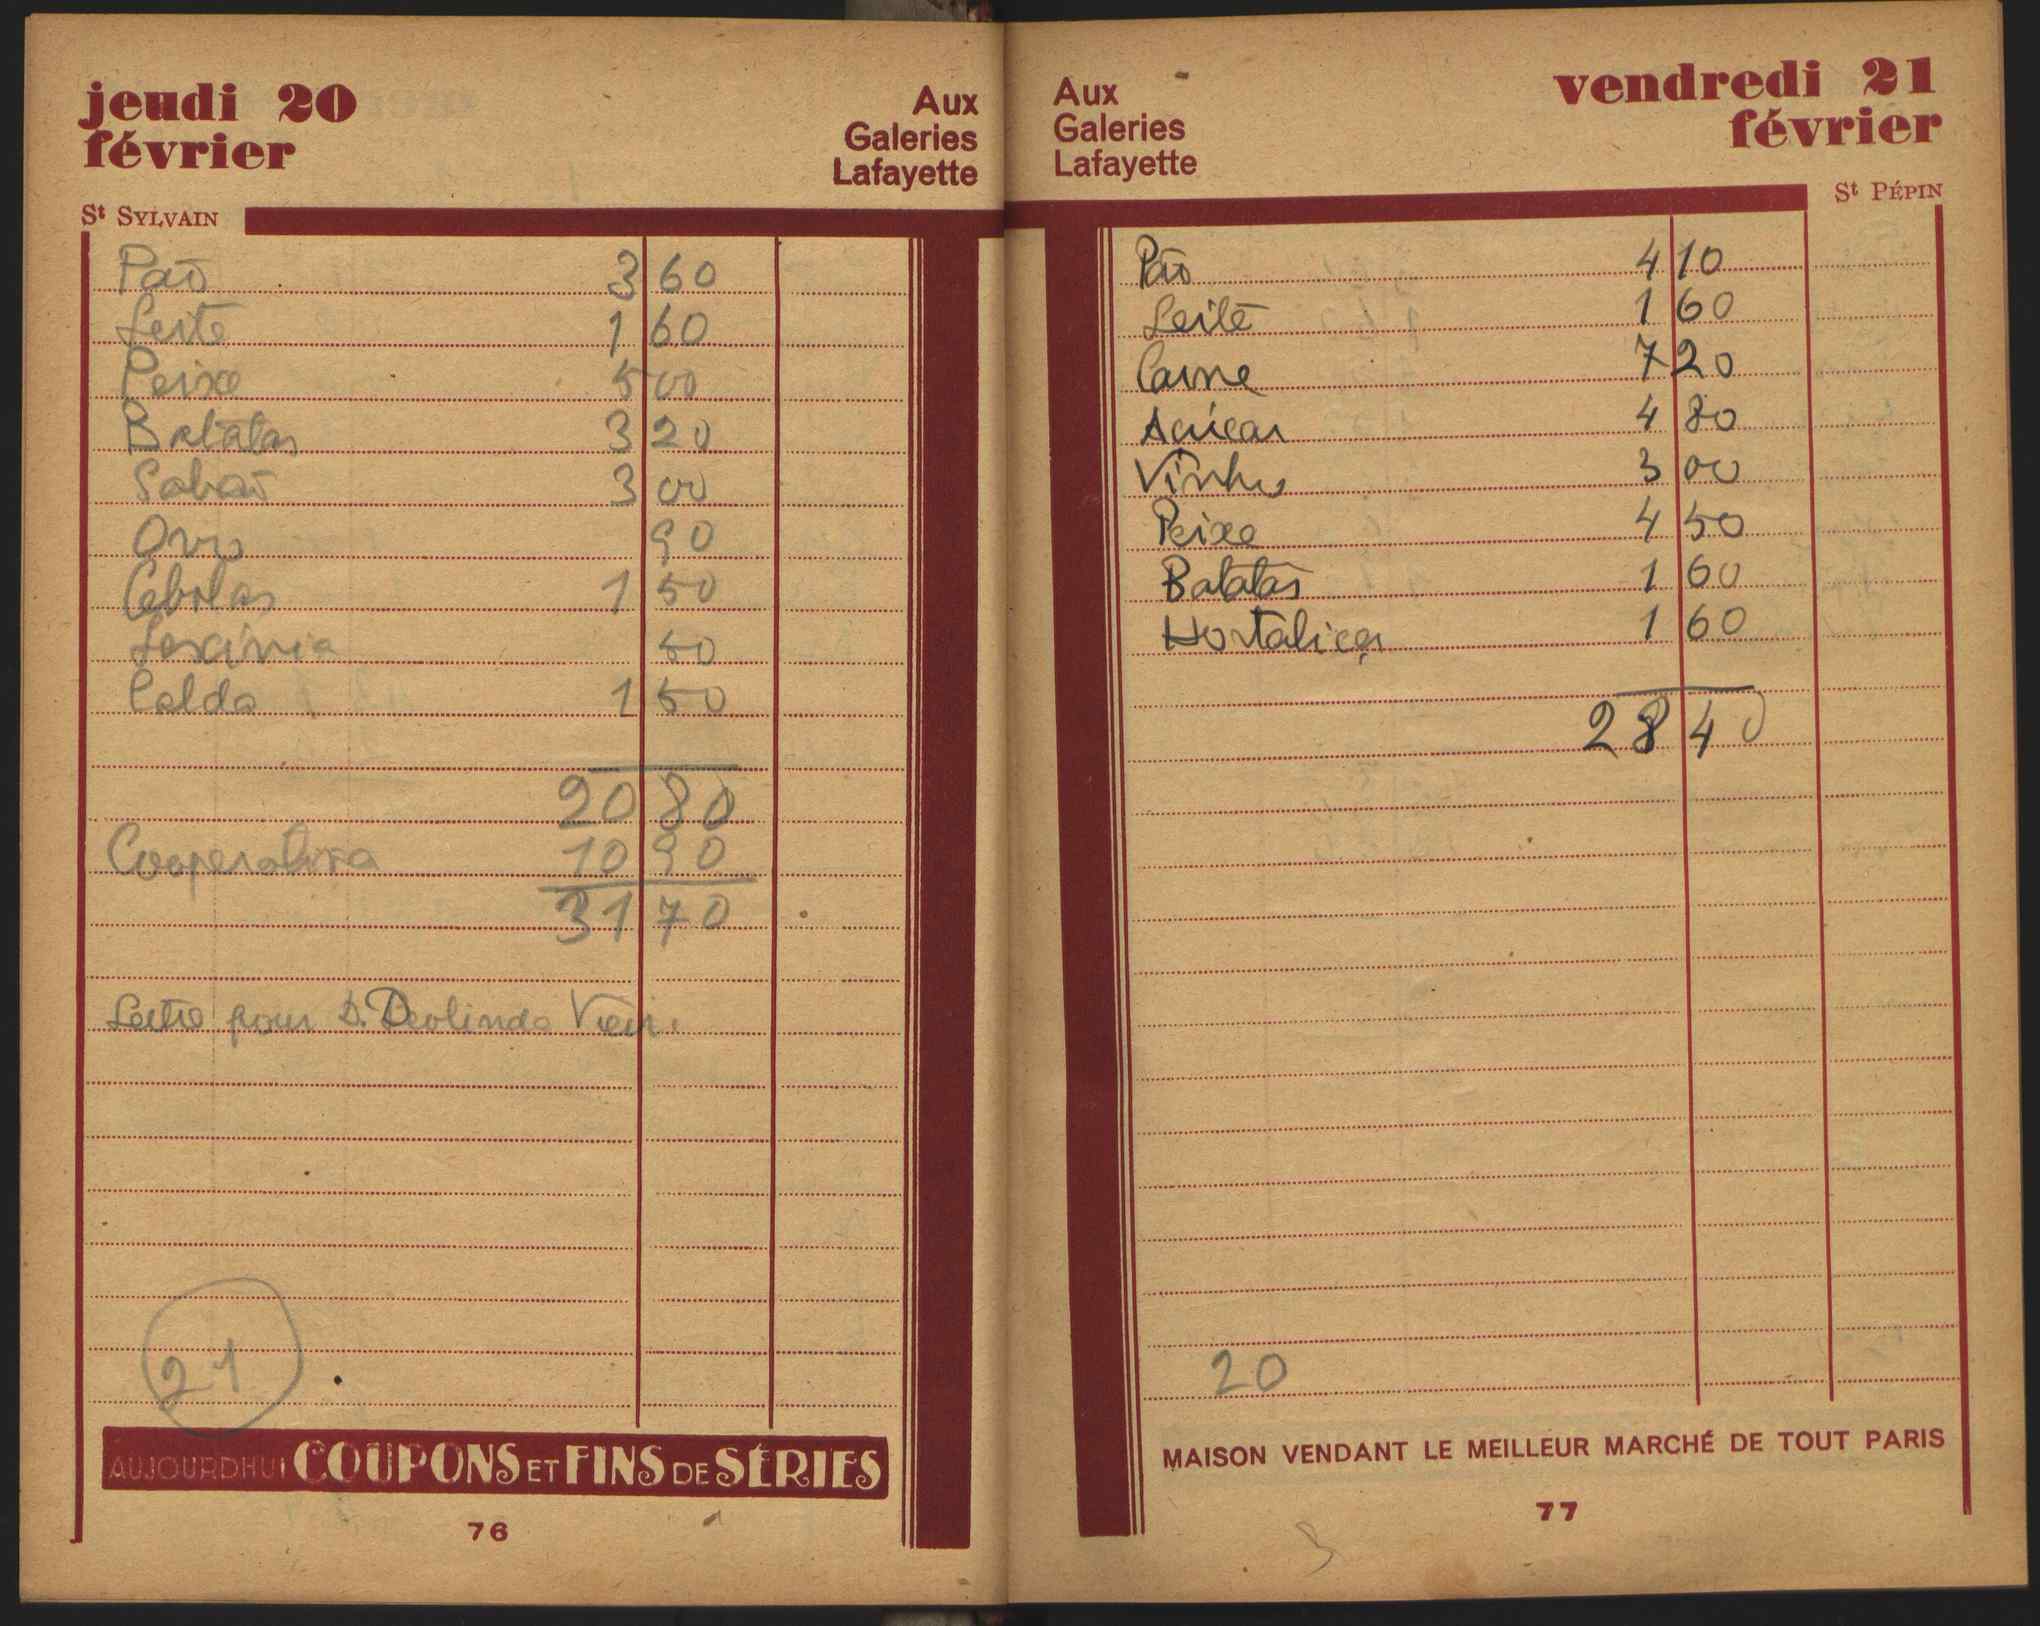 jeudi 20
février
Aux
Galeries
Lafayette
St SYLVAIN
Pão 3 60
Leite 1 60
Peixe 5 00
Batatas 3 20
Sabão 3 00
Ovo 90
Cebolas 1 50
Lexivia 50
Calda 1 50
20 80
Cooperativa 10 90
31 70
Lettre pour D. Deolinda Vieir.
21
AUJOURD'HUI COUPONS ET FINS DE SÉRIES
76
Aux
Galeries
Lafayette
vendredi 21
février
St PÉPIN
Pão 4 10
Leite 1 60
Carne 7 20
Açúcar 4 80
Vinho 3 00
Peixe 4 50
Batatas 1 60
Hortaliças 1 60
28 40
20
MAISON VENDANT LE MEILLEUR MARCHÉ DE TOUT PARIS
77